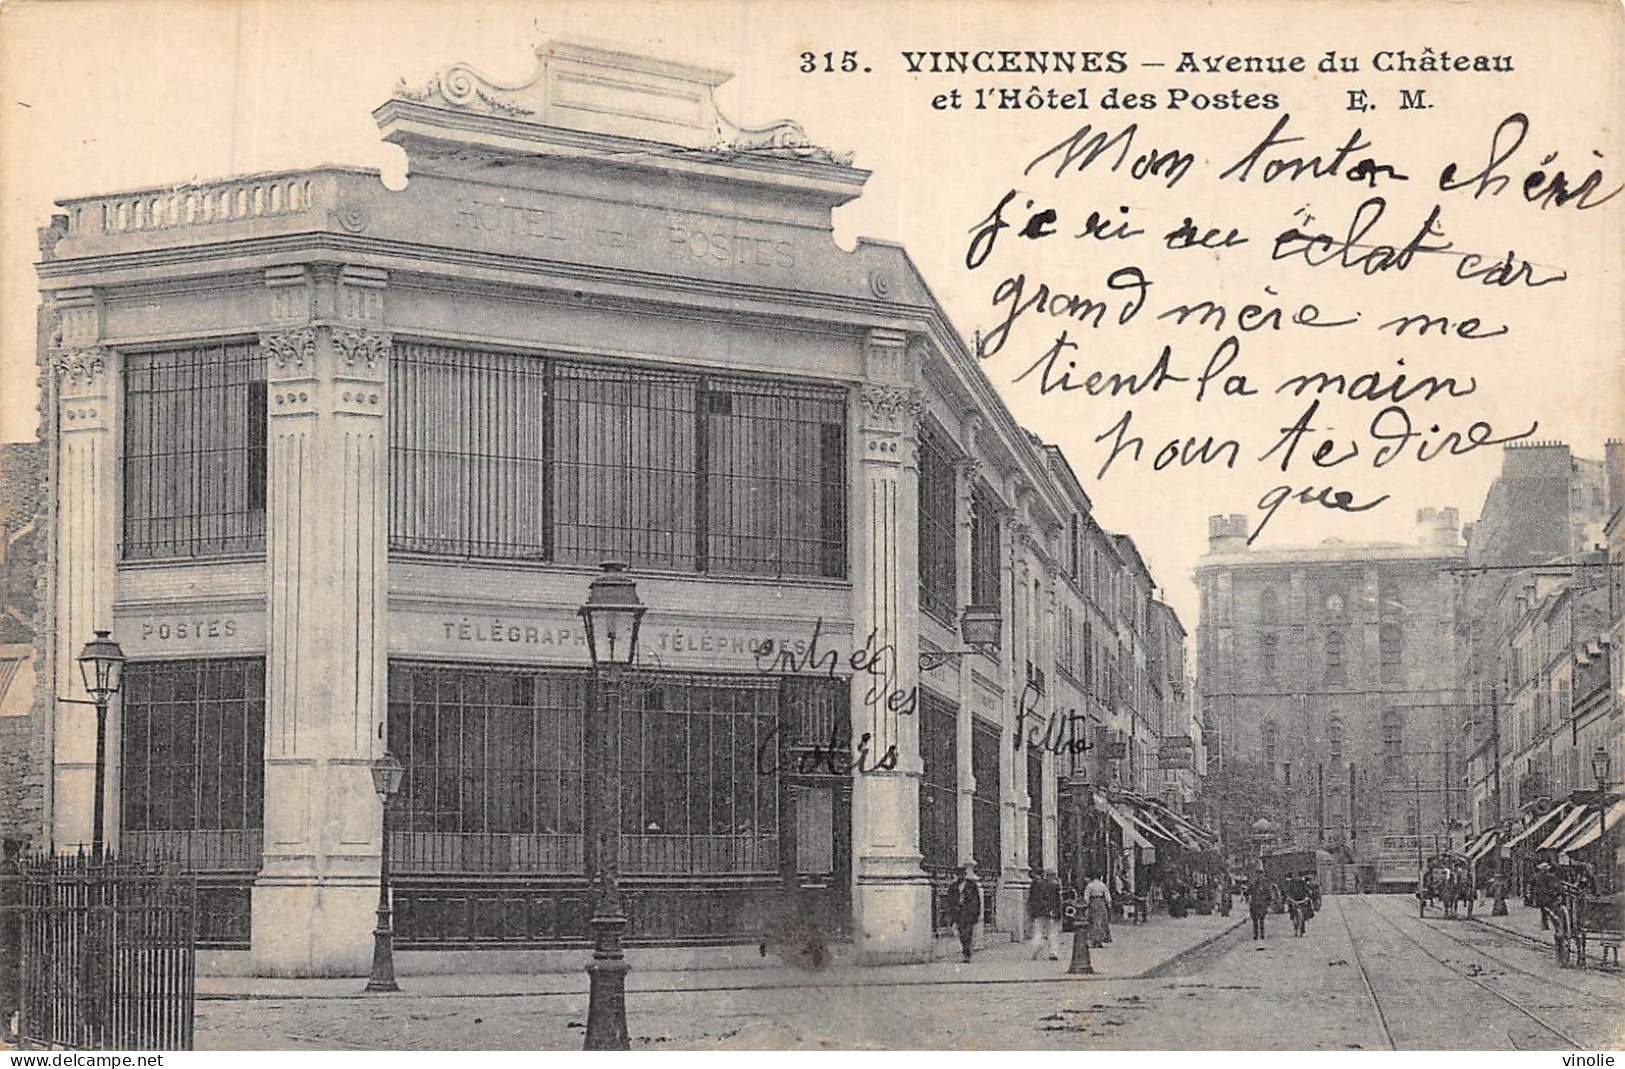 315. VINCENNES – Avenue du Château
et l'Hôtel des Postes E. M.
Mon tonton chéri
je ri au éclat car
grand mère me
tient la main
pour te dire
que
HÔTEL DES POSTES
POSTES
TÉLÉGRAPH
TÉLÉPHONES
entrée
des
Colis
delcampe.net
vinolie